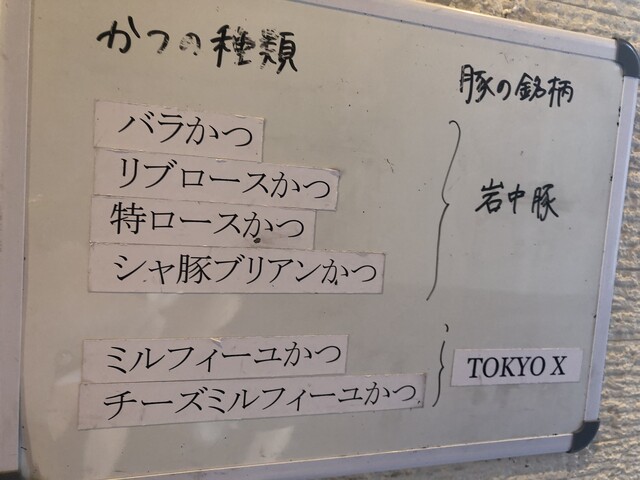 かつの種類
豚の銘柄
バラかつ
リブロースかつ
特ロースかつ
シャ豚ブリアンかつ
岩中豚
ミルフィーユかつ
チーズミルフィーユかつ
TOKYO X